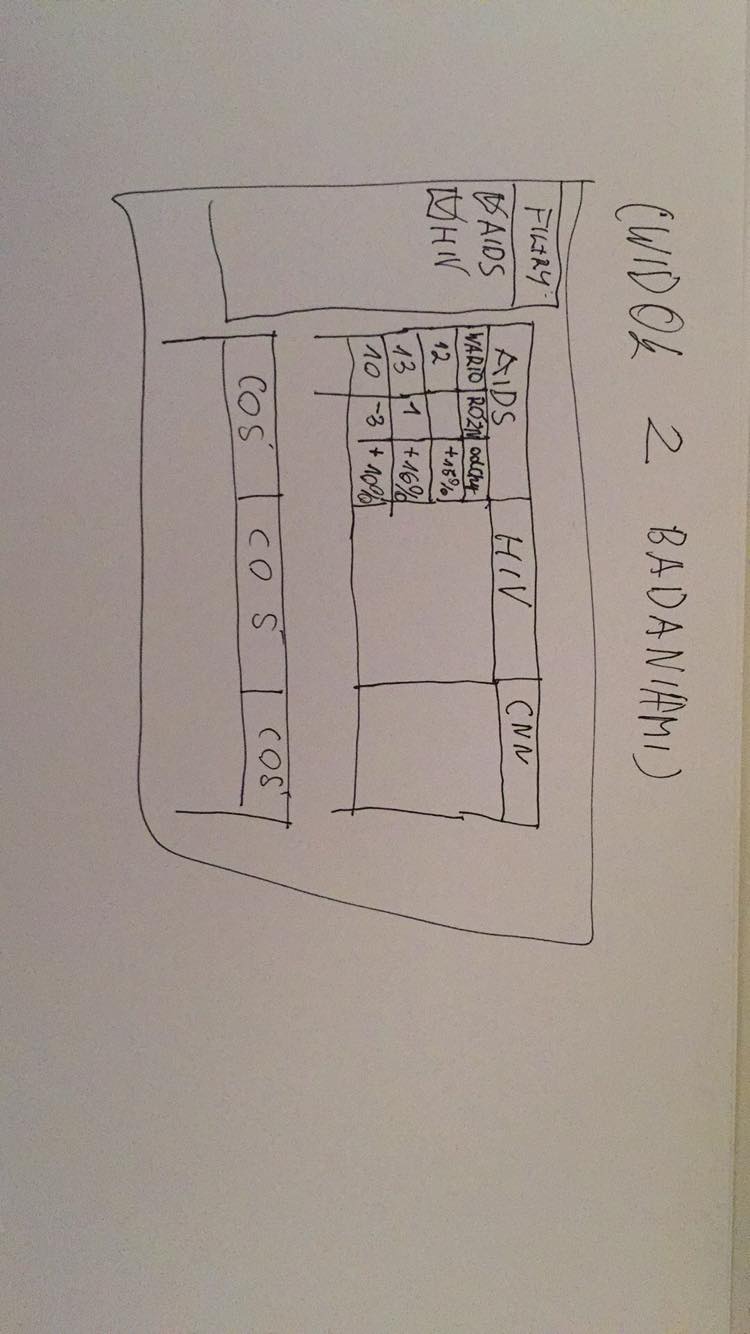 (WIDOK 2 BADANIAMI)
FILTRY
AIDS
HIV
AIDS HIV CNN
WARTO RÓŻN odchy
12 +15%
13 1 +16%
10 -3 +10%
COŚ COŚ COŚ